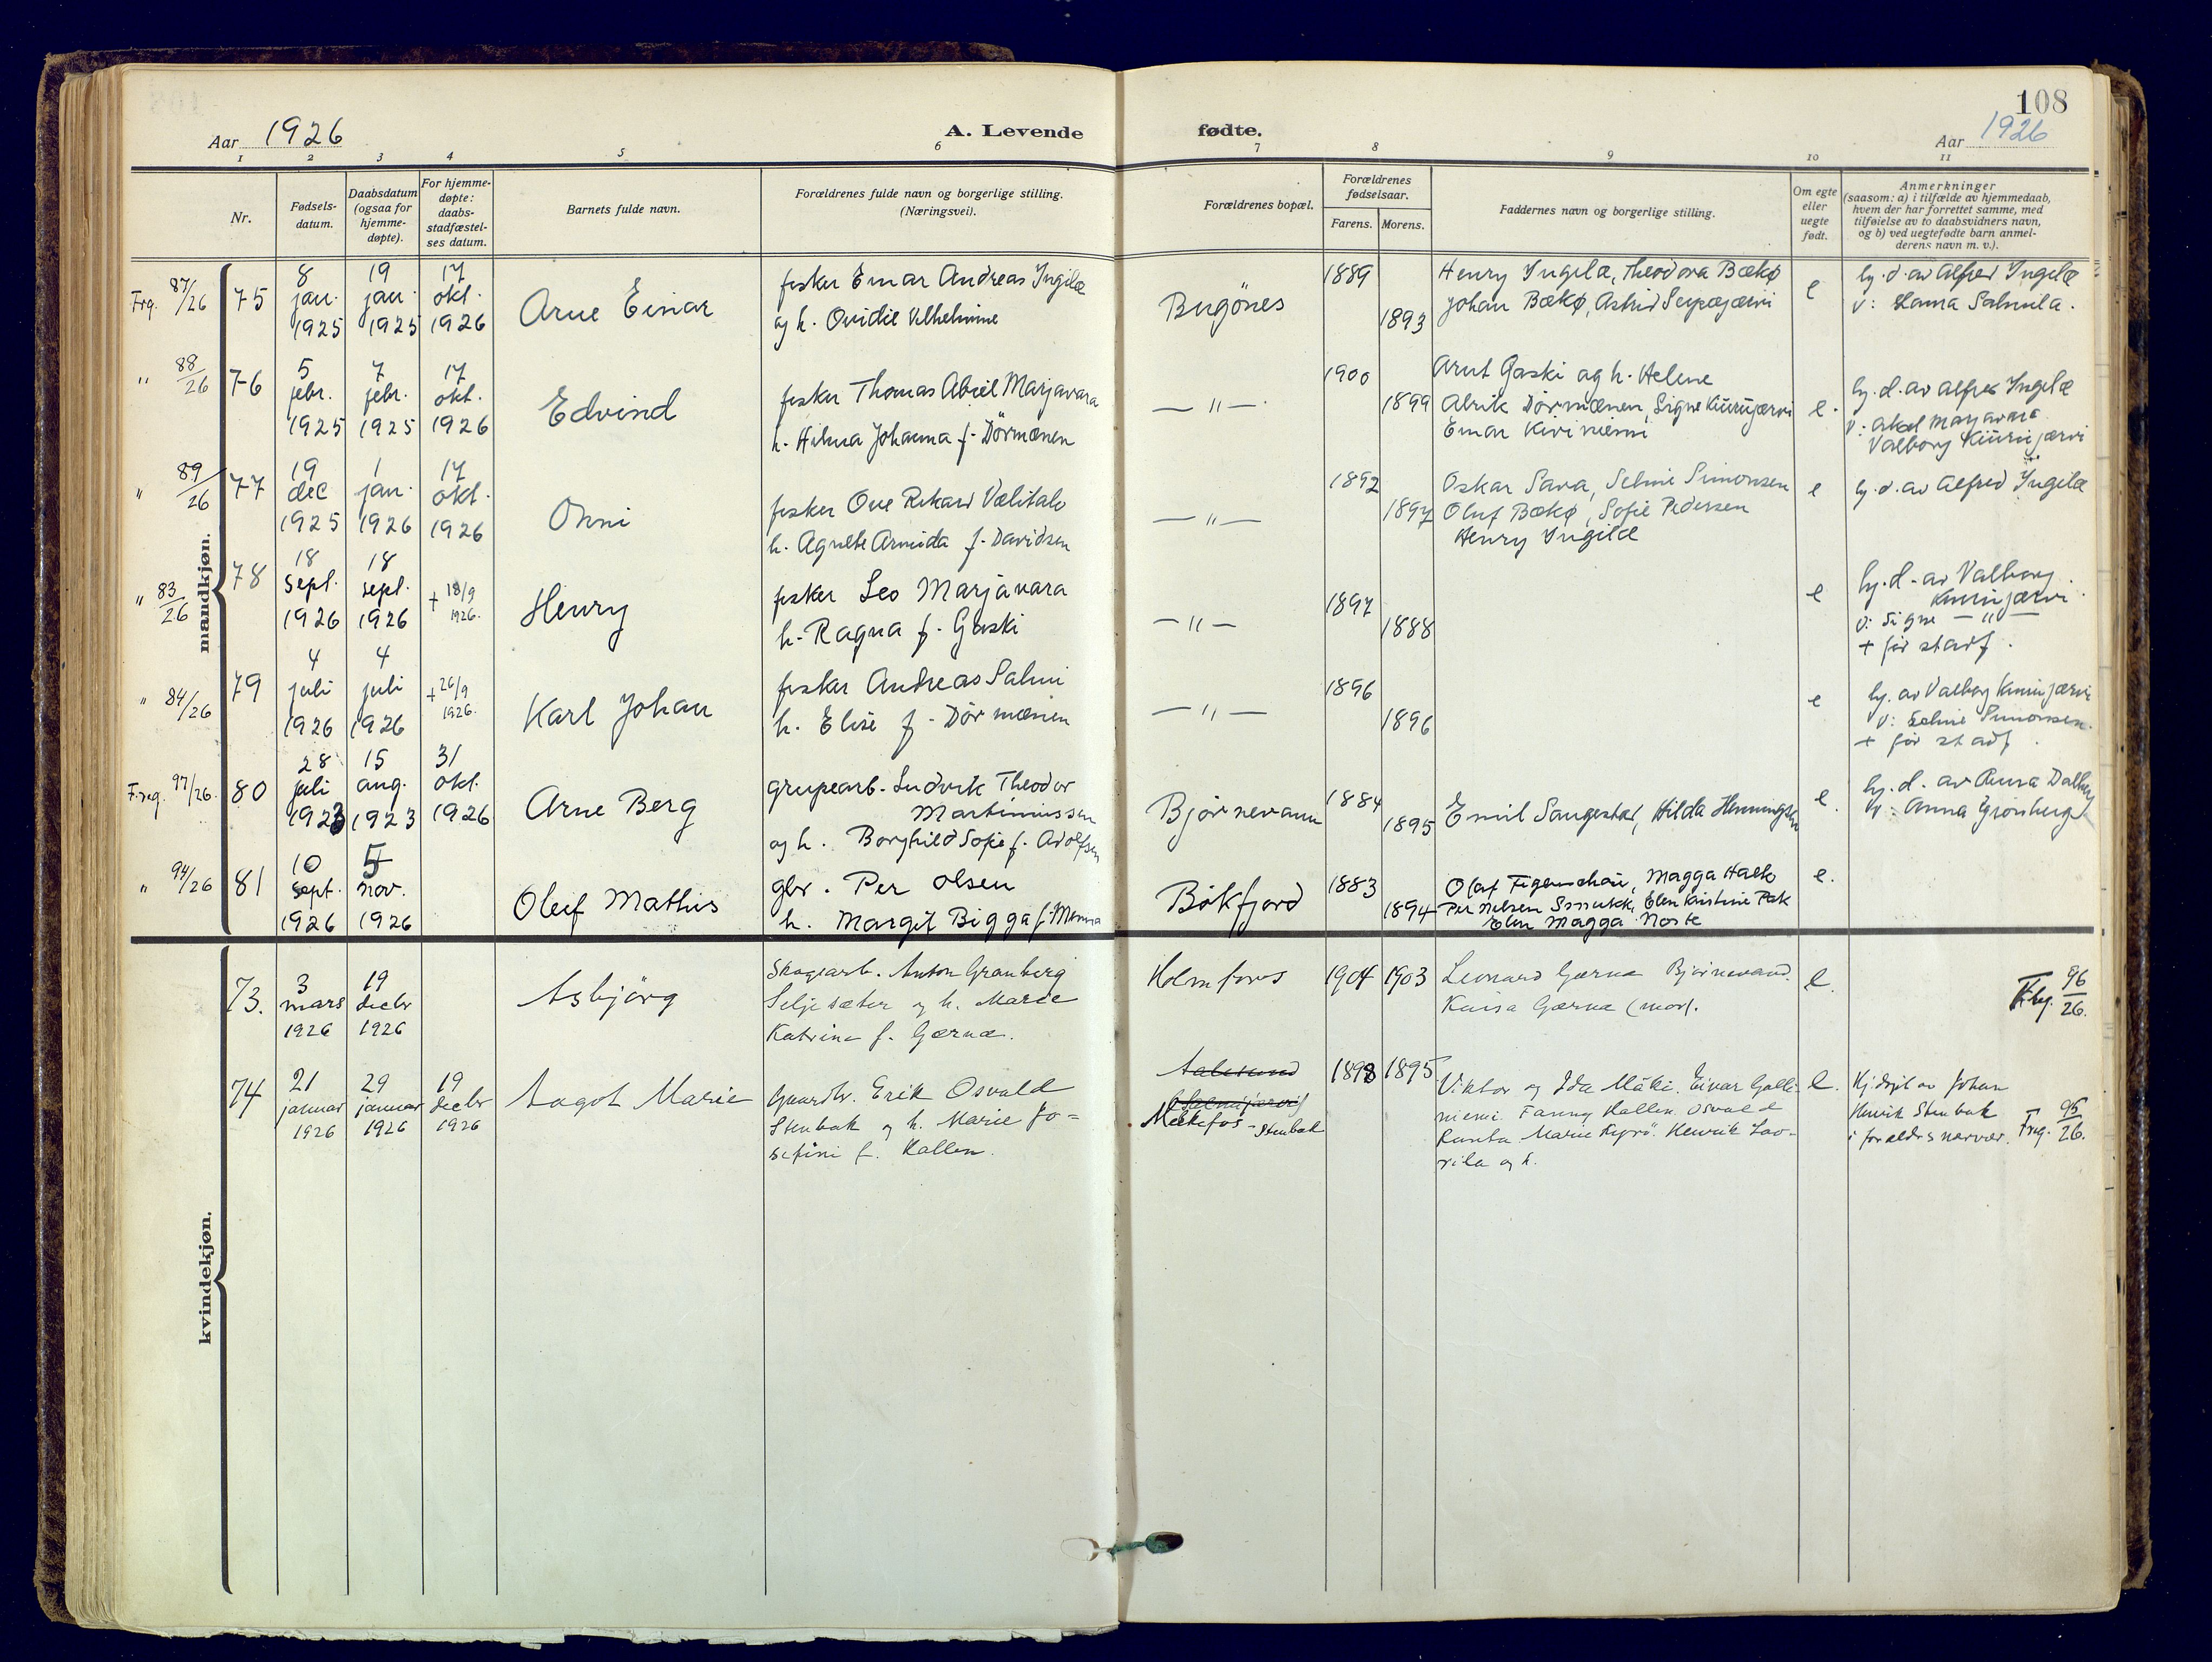 108
Aar 1926
A. Levende
fødte.
Aar 1926
1 2 3 4 5 6 7 8 9 10 11
Nr.
Fødsels-
datum.
Daabsdatum
(ogsaa for
hjemme-
døpte).
For hjemme-
døpte:
daabs-
stadfæstel-
ses datum.
Barnets fulde navn.
Forældrenes fulde navn og borgerlige stilling.
(Næringsvei).
Forældrenes bopæl.
Forældrenes
fødselsaar.
Farens. Morens.
Faddernes navn og borgerlige stilling.
Om egte
eller
uegte
født.
Anmerkninger
(saasom: a) i tilfælde av hjemmedaab,
hvem der har forrettet samme, med
tilføielse av to daabsvidners navn,
og b) ved uegtefødte barn anmel-
derens navn m. v.).
mandkjøn.
Frg. 87/26
75
8
jan.
1925
19
jan.
1925
17
okt.
1926
Arne Einar
fisker Einar Andreas Ingilæ
og h. Ovidie Vilhelmine
Bugönes
1889
1893
Henry Ingilæ, Theodora Bækø
Johan Bækø, Astrid Seipæjærvi
e
hj. d. av Alfred Ingilæ
v: Hanna Salmila.
" 88/26
76
5
febr.
1925
7
febr.
1925
17
okt.
1926
Edvind
fisker Thomas Abiel Marjavara
h. Hilma Johanna f. Dörmænen
— " —
1900
1899
Arnt Gaski og h. Helene
Alrik Dörmænen, Signe Kiurujærvi
Einar Kiviniemi
e.
hj. d. av Alfred Ingilæ
v: Aksel Marjavara
Valborg Kiurujærvi
" 89/26
77
19
dec
1925
1
jan.
1926
17
okt.
1926
Onni
fisker Ove Rikard Vælitalo
h. Agnete Armida f. Davidsen
— " —
1892
1897
Oskar Sava, Selmi Simonsen
Oluf Bækø, Sofie Pedersen
Henry Ingilæ
e
hj. d. av Alfred Ingilæ
" 83/26
78
18
sept.
1926
18
sept.
1926
+ 18/9
1926.
Henry
fisker Leo Marjavara
h. Ragna f. Gaski
— " —
1897
1888
e
hj. d. av Valborg
Kiurujærvi.
v: Signe — " —
+ før stadf.
" 84/26
79
4
juli
1926
4
juli
1926
+ 26/9
1926.
Karl Johan
fisker Andreas Salmi
h. Elise f. Dörmænen
— " —
1896
1896
e
hj. av Valborg Kiurujærvi
v: Selmi Simonsen.
+ før stadf.
F.reg. 97/26.
80
28
juli
1923
15
aug.
1923
31
okt.
1926
Arne Berg
grupearb. Ludvik Theodor
Martinussen
og h. Borghild Sofie f. Adolfsen
Bjørnevann
1884
1895
Emil Saugestad, Hilda Henningsen
e.
hj. d. av Anna Dalberg
v: Anna Grønberg
" 94/26
81
10
sept.
1926
5
nov.
1926
Oleif Mathis
gbr. Per Olsen
h. Margit Bigga f. Menna
Bøkfjord
1883
1894
Olaf Figenschau, Magga Hætto
Per Nilsen Smukk, Elen Kristine Pak
Elen Magga Noste
e.
kvindekjøn.
73.
3
mars
1926
19
decbr
1926
Asbjörg
Skogsarb. Anton Granberg
Seljesæter og h. Marie
Katrine f. Gærnæ.
Holmfoss
1904
1903
Leonard Gærna Bjørnevand.
Kaisa Gærna (mor).
e.
Frg. 96/26.
74
21
januar
1926
29
januar
1926
19
decbr
1926
Aagot Marie
Gaardbr. Erik Osvald
Stenbak og h. Marie Jo-
sefine f. Kallen.
Melkefos - Stenbak
1898
1895
Viktor og Ida Mäki. Einar Galli-
niemi. Fanny Kallen. Osvald
Ranta. Marie Kyrö. Henrik Lav-
rila og h.
e.
Hj.døpt av Johan
Henrik Stenbak
i forældres nærvær. Freg. 95/26.